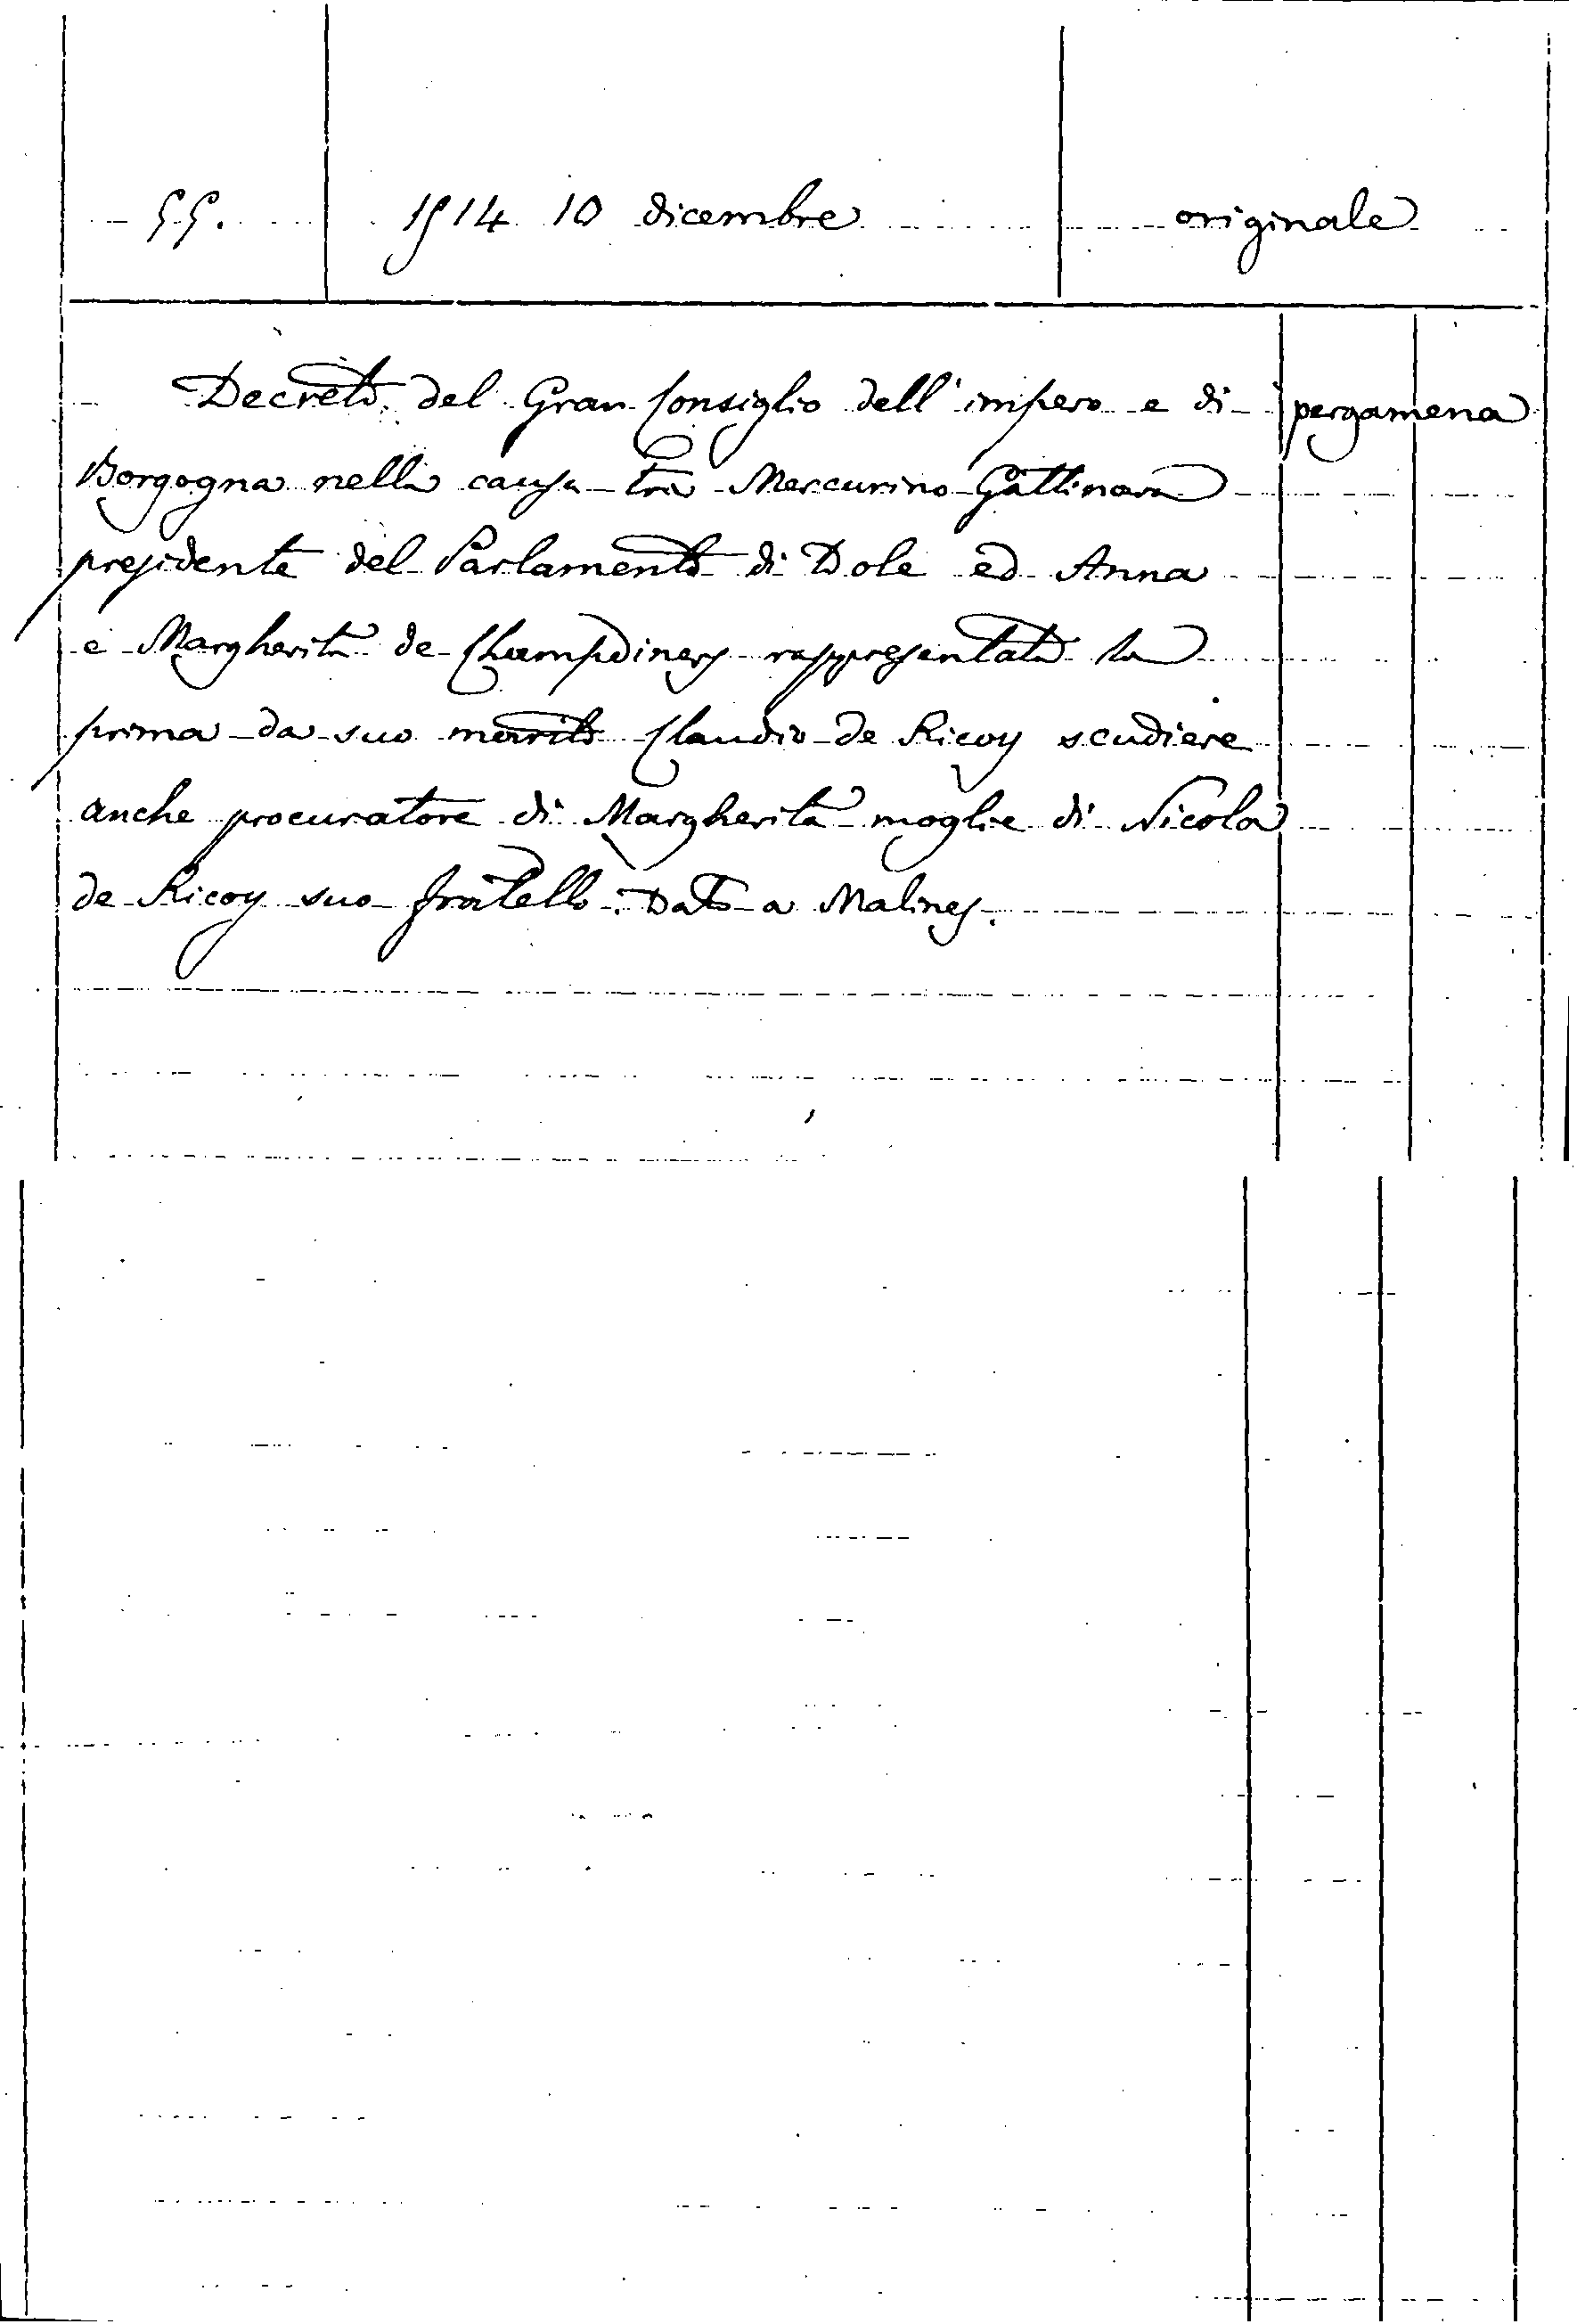 55. 1514 10 dicembre originale
Decreto del Gran Consiglio dell'impero e di pergamena
Borgogna nella causa tra Mercurino Gattinara
presidente del Parlamento di Dole ed Anna
e Margherita de Champdivers rappresentata la
prima da suo marito Claudio de Ricoy scudiere
anche procuratore di Margherita moglie di Nicola
de Ricoy suo fratello. Dato a Malines.